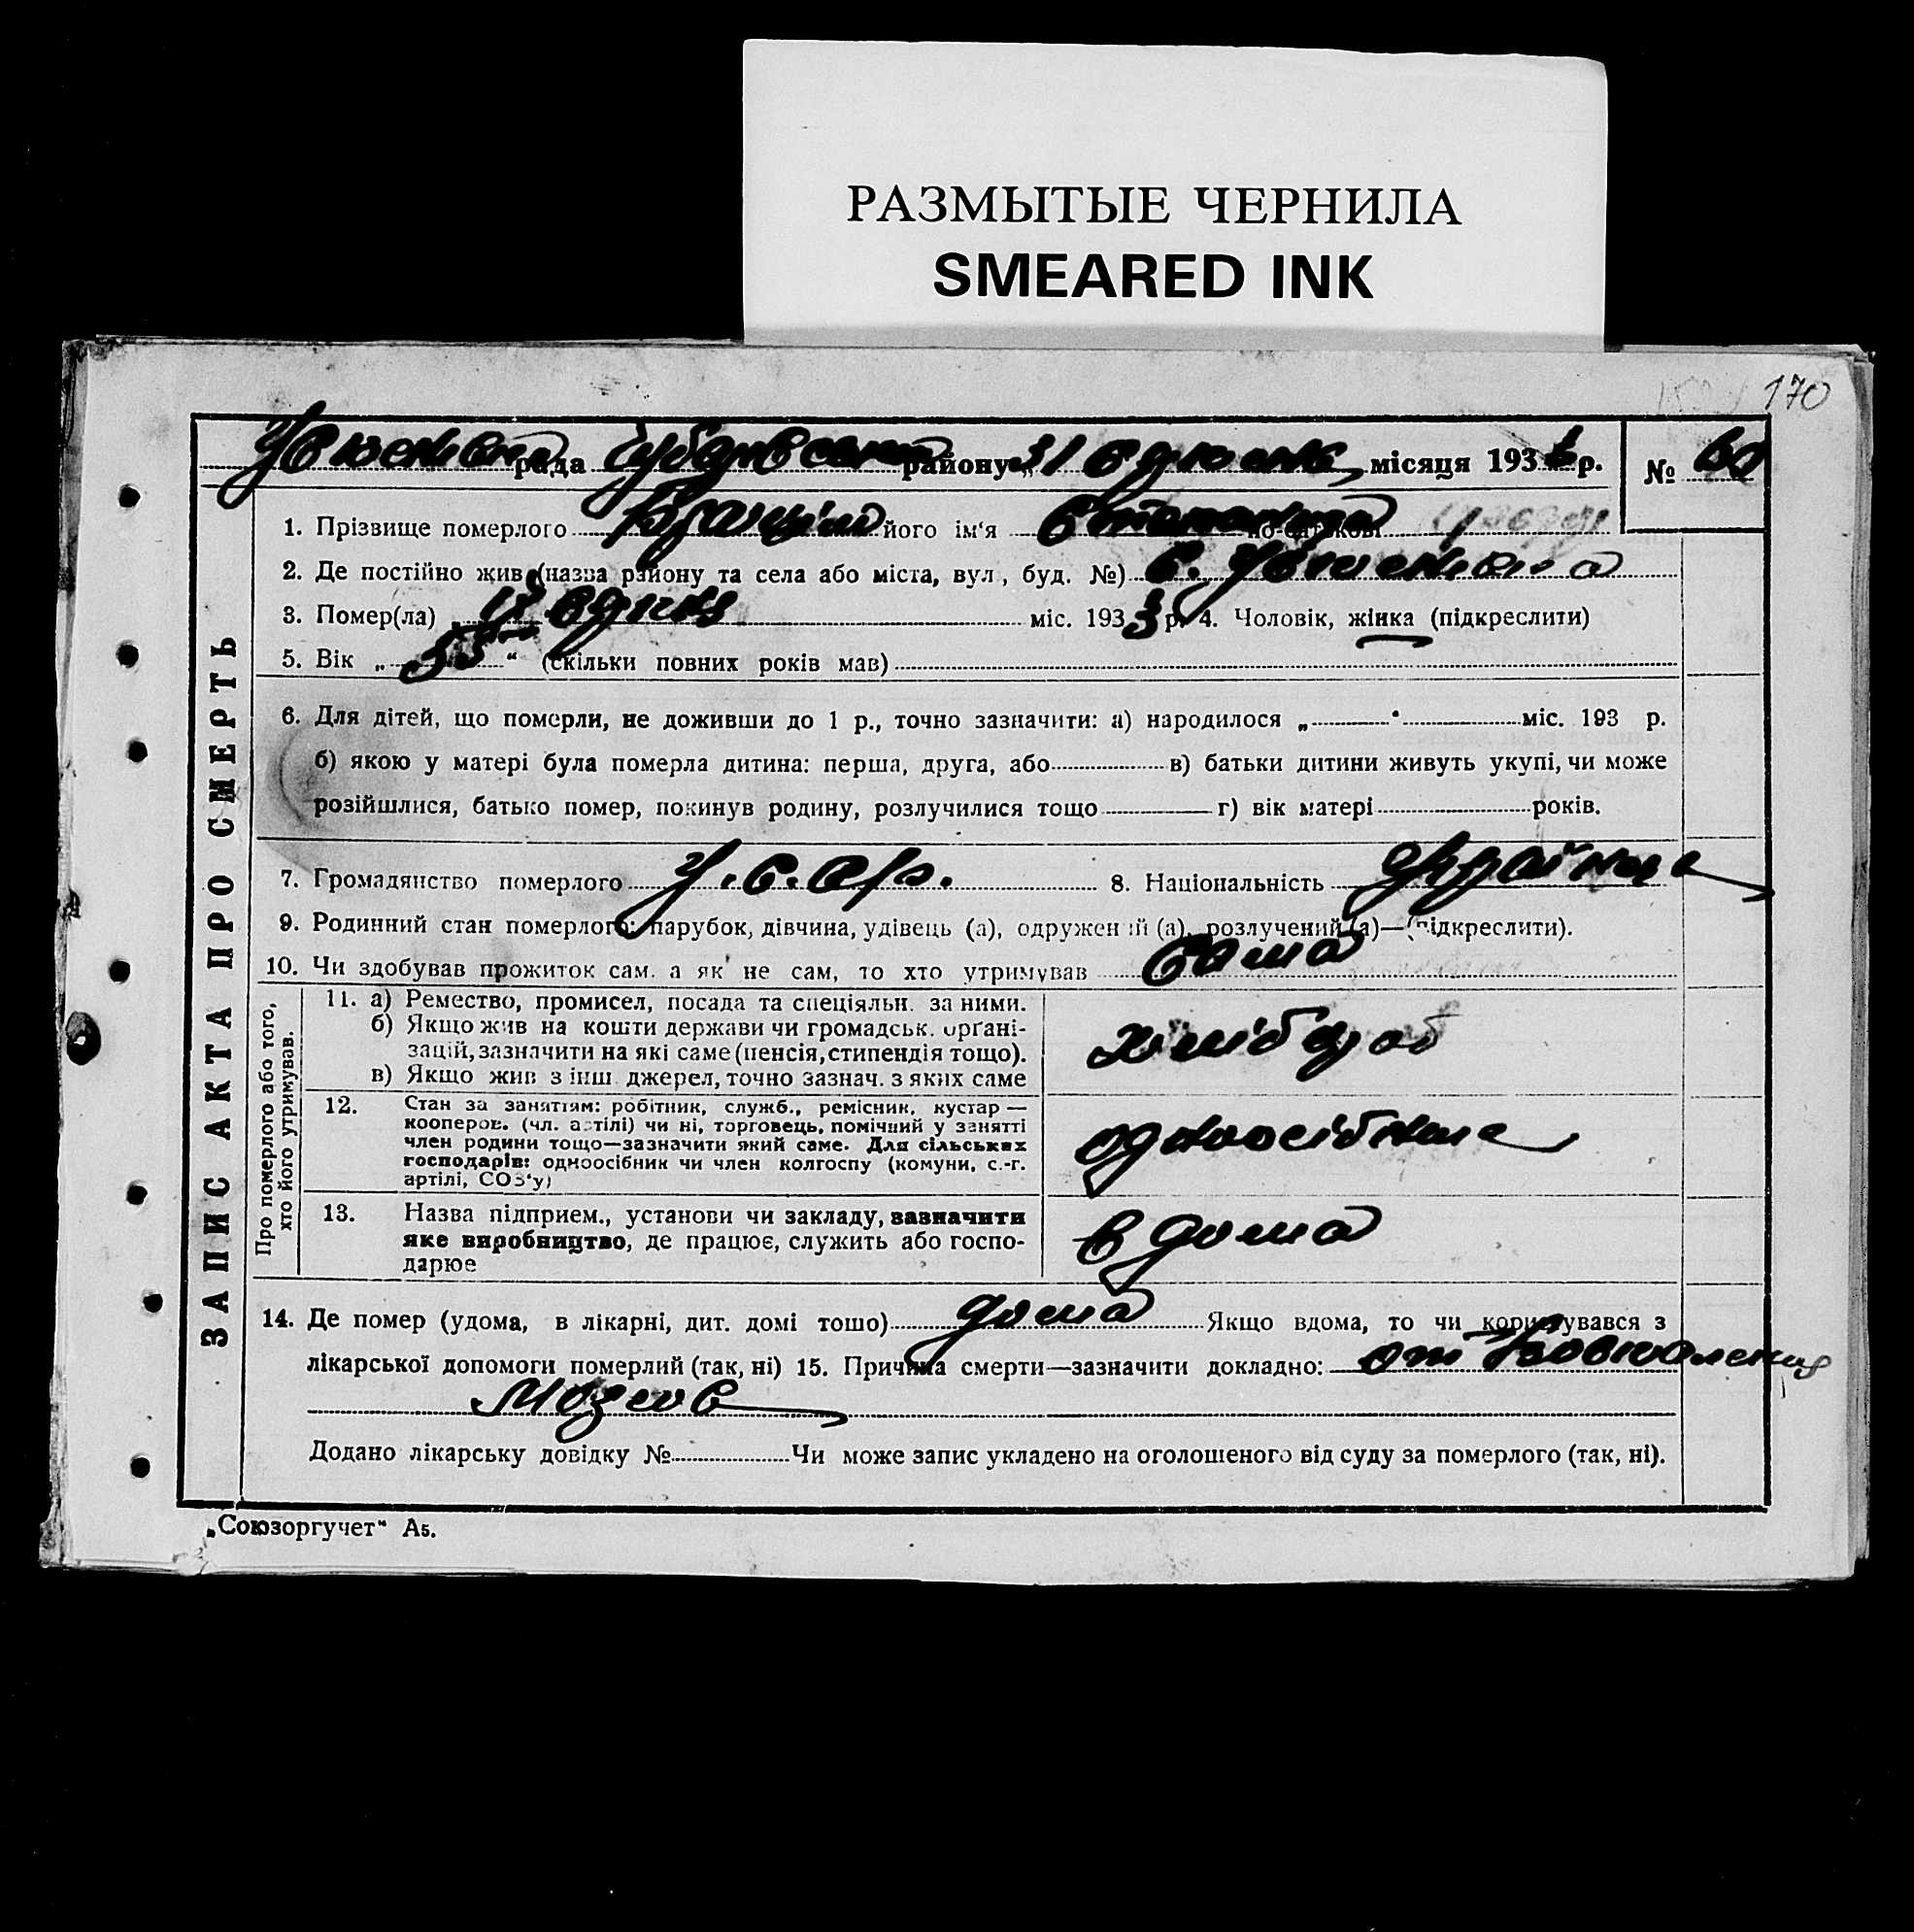 РАЗМЫТЫЕ ЧЕРНИЛА
SMEARED INK
170
рада району „31 місяця 193 р.
№ 60
ЗАПИС АКТА ПРО СМЕРТЬ
1. Прізвище померлого його ім'я по-батькові
2. Де постійно жив (назва району та села або міста, вул, буд. №) с.
3. Помер(ла) міс. 1933 р. 4. Чоловік, жінка (підкреслити)
5. Вік „55“ (скільки повних років мав)
6. Для дітей, що померли, не доживши до 1 р., точно зазначити: а) народилося „ “ міс. 193 р.
б) якою у матері була померла дитина: перша, друга, або в) батьки дитини живуть укупі, чи може
розійшлися, батько помер, покинув родину, розлучилися тощо г) вік матері років.
7. Громадянство померлого У.С.С.р. 8. Національність
9. Родинний стан померлого: парубок, дівчина, удівець (а), одружений (а), розлучений (а)—(підкреслити).
10. Чи здобував прожиток сам, а як не сам, то хто утримував сама
Про померлого або того,
хто його утримував.
11. а) Ремество, промисел, посада та спеціяльн. за ними.
б) Якщо жив на кошти держави чи громадськ. орґані-
зацій, зазначити на які саме (пенсія, стипендія тощо).
в) Якщо жив з інш. джерел, точно зазнач. з яких саме
хлібороб
12. Стан за заняттям: робітник, служб., ремісник, кустар —
кооперов. (чл. артілі) чи ні, торговець, помічний у занятті
член родини тощо—зазначити який саме. Для сільських
господарів: одноосібник чи член колгоспу (комуни, с.-г.
артілі, СОЗ'у)
одноосібник
13. Назва підприєм., установи чи закладу, зазначити
яке виробництво, де працює, служить або госпо-
дарює
в дома
14. Де помер (удома, в лікарні, дит. домі тошо) дома Якщо вдома, то чи користувався з
лікарської допомоги померлий (так, ні) 15. Причина смерти—зазначити докладно: от
Додано лікарську довідку № Чи може запис укладено на оголошеного від суду за померлого (так, ні).
„Союзоргучет“ А5.